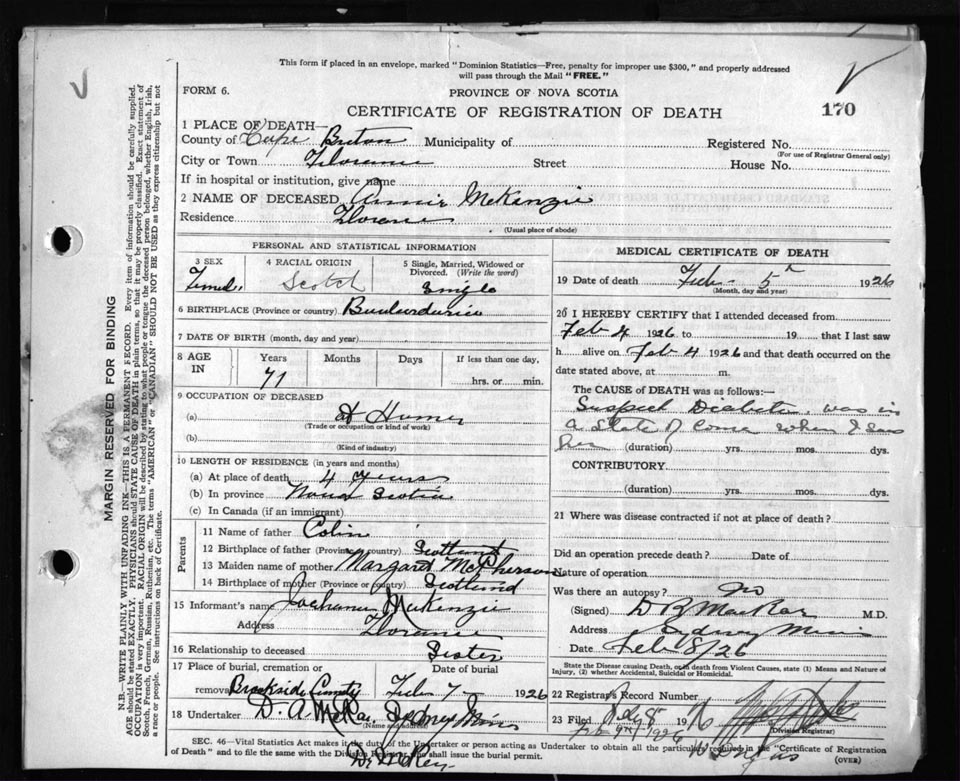 This form if placed in an envelope, marked "Dominion Statistics—Free, penalty for improper use $300," and properly addressed
will pass through the Mail "FREE."
FORM 6.
PROVINCE OF NOVA SCOTIA
CERTIFICATE OF REGISTRATION OF DEATH
170
1 PLACE OF DEATH—
County of Cape Breton Municipality of Registered No.
(For use of Registrar General only)
City or Town Florence Street House No.
If in hospital or institution, give name
2 NAME OF DECEASED Annie McKenzie
Residence Florence
(Usual place of abode)
PERSONAL AND STATISTICAL INFORMATION
3 SEX 4 RACIAL ORIGIN 5 Single, Married, Widowed or
Divorced. (Write the word)
Female Scotch Single
6 BIRTHPLACE (Province or country)
7 DATE OF BIRTH (month, day and year)
8 AGE IN Years Months Days If less than one day,
71 hrs. or min.
9 OCCUPATION OF DECEASED
(a) At Home
(Trade or occupation or kind of work)
(b)
(Kind of industry)
10 LENGTH OF RESIDENCE (in years and months)
(a) At place of death 4 years
(b) In province Nova Scotia
(c) In Canada (if an immigrant)
Parents
11 Name of father Colin
12 Birthplace of father (Province or country) Scotland
13 Maiden name of mother Margaret McPherson
14 Birthplace of mother (Province or country) Scotland
15 Informant's name McKenzie
Address Florence
16 Relationship to deceased Sister
17 Place of burial, cremation or Date of burial
removal Brookside Feb 7 1926
18 Undertaker D. A. McRae Sydney Mines
(Name and address)
MEDICAL CERTIFICATE OF DEATH
19 Date of death Feb - 5th 1926
(Month, day and year)
20 I HEREBY CERTIFY that I attended deceased from
Feb 4 1926 to 19 that I last saw
h alive on Feb 4 1926 and that death occurred on the
date stated above, at m.
The CAUSE OF DEATH was as follows:
Suspect Diabetes, was in
a state of Coma when I saw
her (duration) yrs. mos. dys.
CONTRIBUTORY
(duration) yrs. mos. dys.
21 Where was disease contracted if not at place of death?
Did an operation precede death? Date of
Nature of operation
Was there an autopsy? No
(Signed) D R MacRae M.D.
Address Sydney Mines
Date Feb 8/26
State the Disease causing Death, or in death from Violent Causes, state (1) Means and Nature of
Injury, (2) whether Accidental, Suicidal or Homicidal.
22 Registrar's Record Number
23 Filed Feb 8 1926
(Division Registrar)
Feb 9th 1926
SEC. 46—Vital Statistics Act makes it the duty of the Undertaker or person acting as Undertaker to obtain all the particulars required in the "Certificate of Registration
of Death" and to file the same with the Division Registrar who shall issue the burial permit.
(OVER)
Dr McKey
MARGIN RESERVED FOR BINDING
N.B.—WRITE PLAINLY WITH UNFADING INK—THIS IS A PERMANENT RECORD. Every item of information should be carefully supplied.
AGE should be stated EXACTLY. PHYSICIANS should STATE CAUSE OF DEATH in plain terms, so that it may be properly classified. Exact statement of
OCCUPATION is very important. RACIAL ORIGIN will be described by stating to what people or tongue the deceased person belonged, whether English, Irish,
Scotch, French, German, Russian, Ruthenian, etc. The terms "AMERICAN" or "CANADIAN" SHOULD NOT BE USED as they express citizenship but not
a race or people. See instructions on back of Certificate.